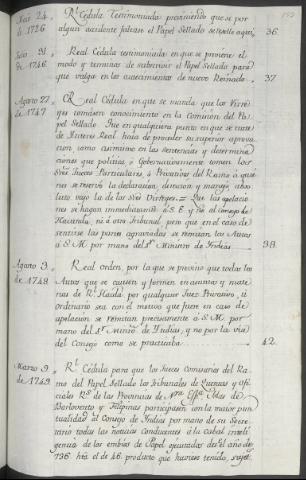 Rl. Cédula Testimoniada previniendo que se por
de 1726 algun accidente faltase el Papel Sellado se selle aqui, 36
Real Cédula testimoniada en que se previene el
de 1746 modo y terminos de subscrivir el Papel Sellado para
que valga en los acaecimientos de nuevo Reinado. 37
Agosto 27 Real Cédula en que se manda que los Virre-
de 1747 yes tomasen conocimiento en la Comision del Pa-
pel Sellado. Que en qualquiera punto en que se trate
de Interes Real haia de preceder su superior aprova-
cion como asimismo en las sentencias y determina-
ciones que politica, ó Gobernativamente tomen los
Sres. Jueces Particulares, ó Privativos del Ramo á quie-
nes se reservó la declaracion, direccion y manejo abso-
luto vajo la de los Sres. Virreyes. = Que las apelacio-
nes se hagan immediatamte. á S.E. y no al Consejo de
Hacienda, ni á otro Tribunal, pero que en el caso de
sentirse las partes agraviadas se remitan los Autos
á S.M. por mano del Sr. Ministro de Indias 38.
Agosto 3 Real orden, por la que se previno que todos los
de 1748 Autos que se causen y formen en asuntos y mate-
rias de Rl. Hazda. por qualquier Juez Privativo, ú
ordinario sea con el motivo que fuere en caso de
apelacion se remitan precisamente á S.M. por
mano del Sr. Minro. de Indias, y no por la via
del Consejo como se practicaba 42.
Marzo 9 Rl. Cédula para que los Jueces Comisarios del Ra-
de 1749 mo del Papel Sellado los Tribunales de Cuentas y ofi-
ciales Rs. de las Provincias de Nva. Espa. Islas de
Barlovento y Filipinas participasen con la maior pun-
tualidad al Consejo de Indias por mano de su Secre-
tario todas las noticias conducentes á la cabal inteli-
gencia de los embios de Papel ejecutados desde el año de
736 hta. el de 46. producto que huviese tenido, sujet-